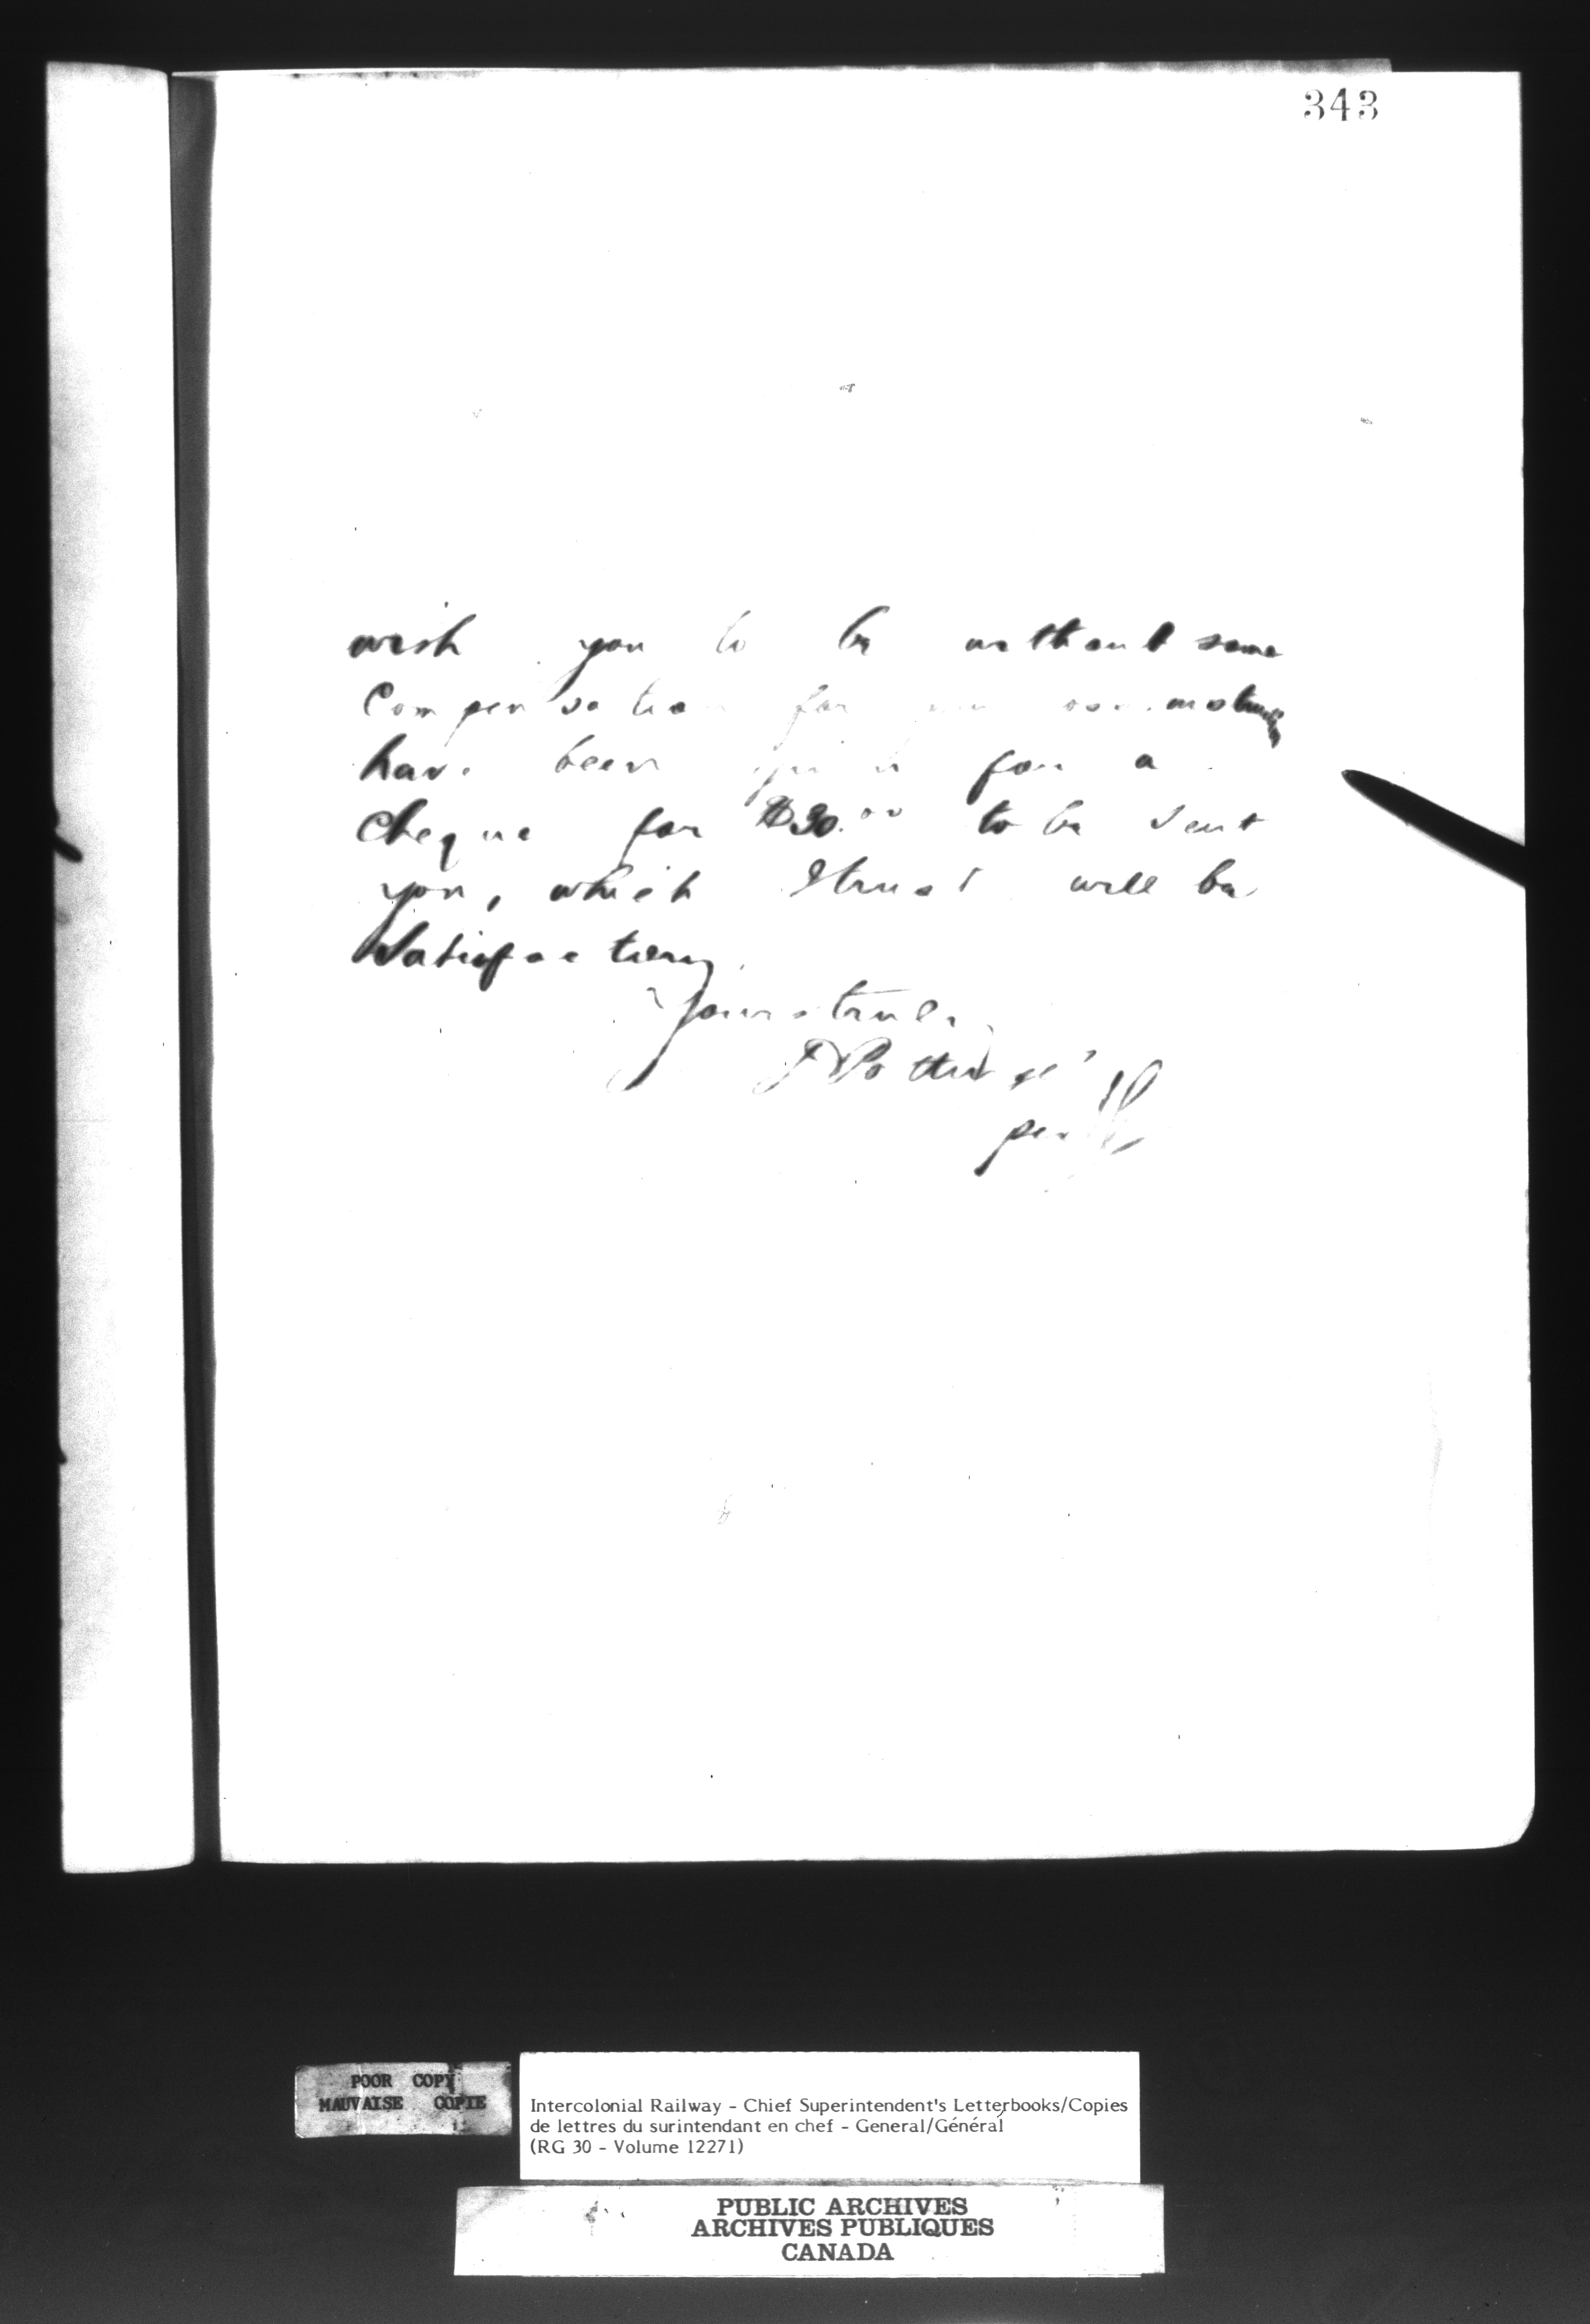 343
wish you to be without some
Compensation for
have been for a
Cheque for $30.00 to be sent
you, which I trust will be
Satisfactory.
Yours truly
D Pottinger
per
POOR COPY
MAUVAISE COPIE
Intercolonial Railway - Chief Superintendent's Letterbooks/Copies
de lettres du surintendant en chef - General/Général
(RG 30 - Volume 12271)
PUBLIC ARCHIVES
ARCHIVES PUBLIQUES
CANADA